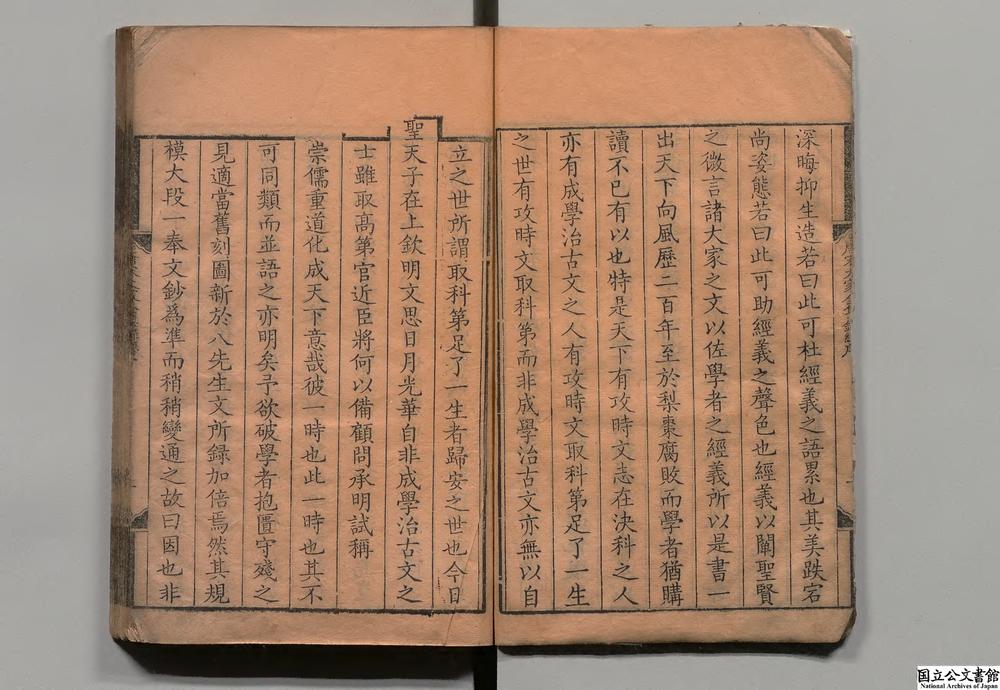 深晦抑生造若曰此可杜經義之語累也其美跌宕
尚姿態若曰此可助經義之聲色也經義以闡聖賢
之微言諸大家之文以佐學者之經義所以是書一
出天下向風歷二百年至於梨棗腐敗而學者猶購
讀不已有以也特是天下有攻時文志在決科之人
亦有成學治古文之人有攻時文取科第足了一生
之世有攻時文取科第而非成學治古文亦無以自
立之世所謂取科第足了一生者歸安之世也今日
聖天子在上欽明文思日月光華自非成學治古文之
士雖取高第官近臣將何以備顧問承明試稱
崇儒重道化成天下意哉彼一時也此一時也其不
可同類而並語之亦明矣予欲破學者抱匱守殘之
見適當舊刻圖新於八先生文所録加倍焉然其規
模大段一奉文鈔爲準而稍稍變通之故曰因也非
国立公文書館
National Archives of Japan